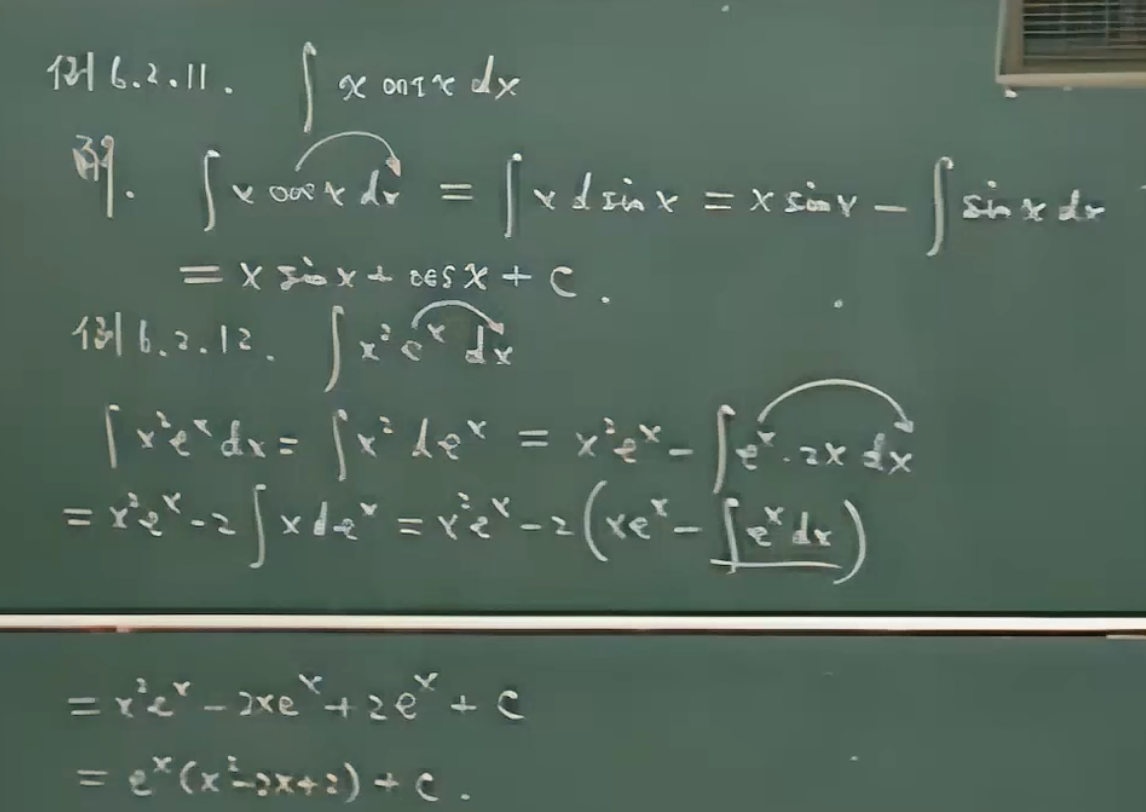 例6.2.11. ∫ x cos x dx
解. ∫ x cos x dx = ∫ x d sin x = x sin x - ∫ sin x dx
= x sin x + cos x + C.
例6.2.12. ∫ x² eˣ dx
∫ x² eˣ dx = ∫ x² d eˣ = x² eˣ - ∫ eˣ · 2x dx
= x² eˣ - 2 ∫ x d eˣ = x² eˣ - 2 (x eˣ - ∫ eˣ dx)
= x² eˣ - 2x eˣ + 2 eˣ + C
= eˣ (x² - 2x + 2) + C.